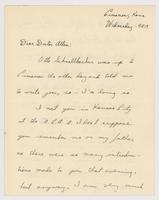 Pimeron, Kans
Wednesday -
Dear Doctor Allen:
Otto Schnellbacher was up to
the other day and told me
to write you, so - I'm doing so
I met you in Kansas City
at the N.C.A.A. I don't suppose
you remember me or my father
as there were so many introduc-
tions made to you that evening,
but anyway, I am very much